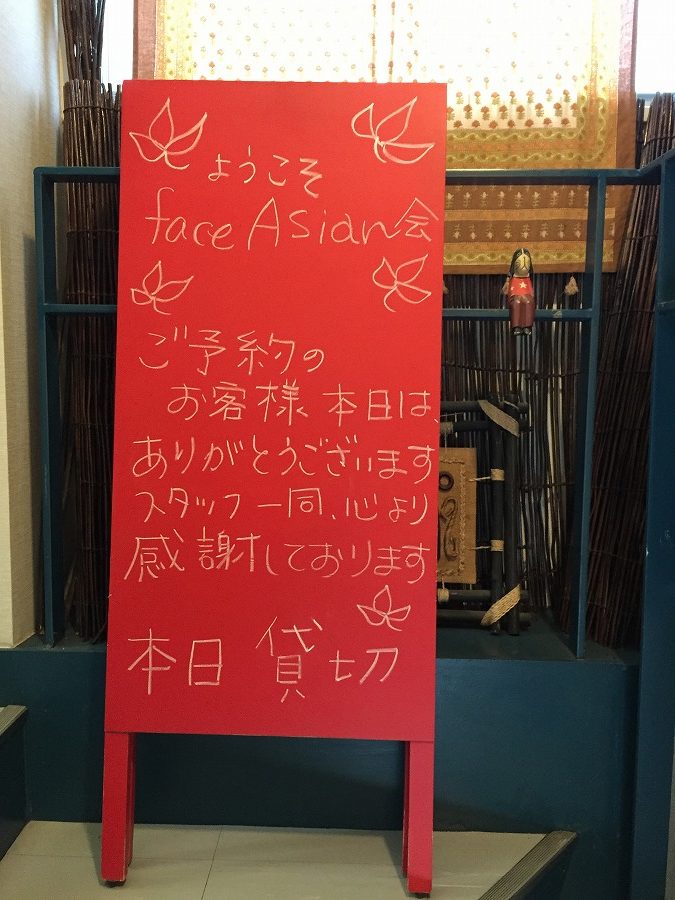 ようこそ
face Asian会
ご予約の
お客様 本日は、
ありがとうございます
スタッフ一同、心より
感謝しております
本日 貸切